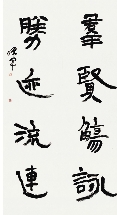 群賢觴詠
勝迹流連